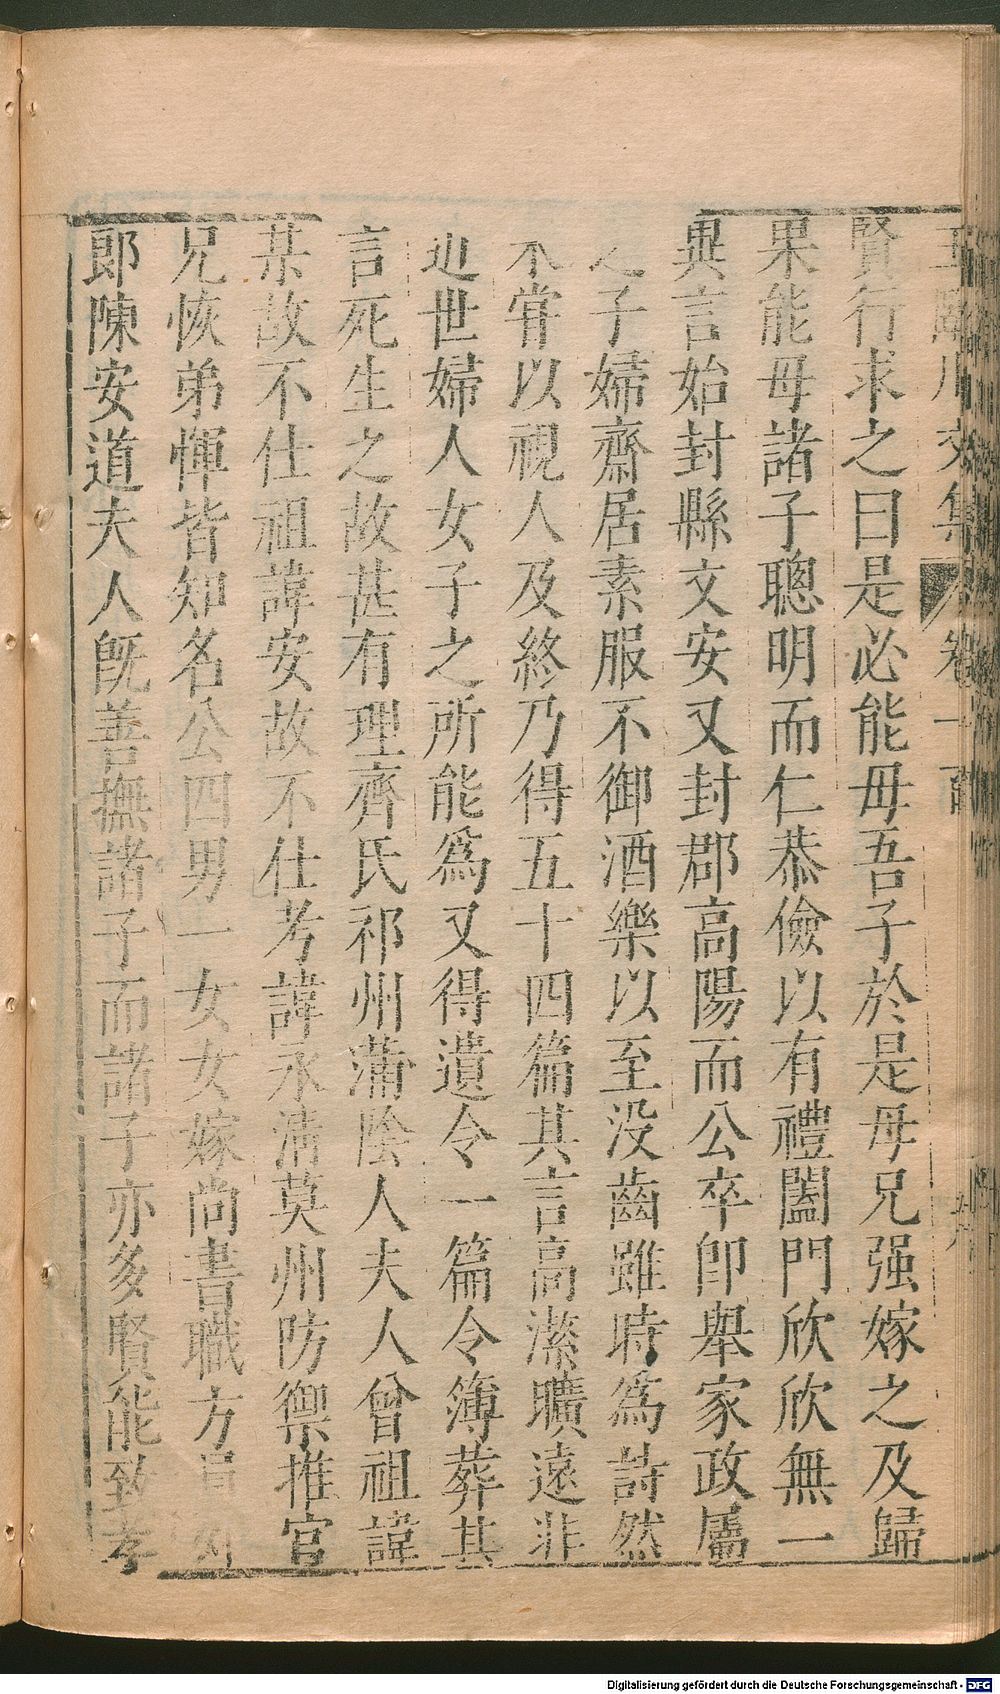 王臨川文集 卷一百
賢行求之曰是必能毋吾子於是母兄强嫁之及歸
果能母諸子聰明而仁恭儉以有禮闔門欣欣無一
異言始封縣文安又封郡高陽而公卒卽舉家政屬
之子婦齋居素服不御酒樂以至没齒雖時為詩然
不嘗以視人及終乃得五十四篇其言高潔曠遠非
近世婦人女子之所能為又得遺令一篇令薄葬其
言死生之故甚有理齊氏祁州蒲陰人夫人曾祖諱
某故不仕祖諱安故不仕考諱永清莫州防禦推官
兄恢弟惲皆知名公四男一女女嫁尚書職方員外
郎陳安道夫人旣善撫諸子而諸子亦多賢能致孝
Digitalisierung gefördert durch die Deutsche Forschungsgemeinschaft - DFG